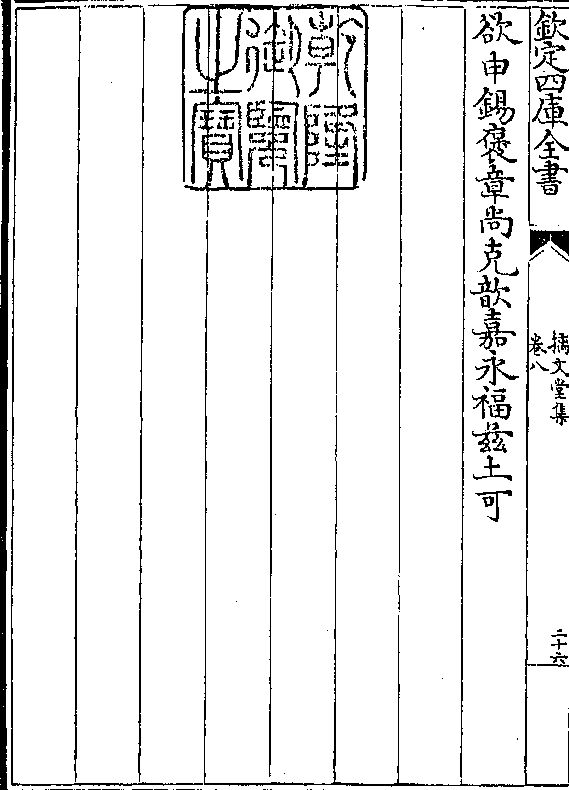 欽定四庫全書
摛文堂集
卷八
二十六
欲申錫褒章尚克歆嘉永福兹土可
乾隆
御覽
之寶